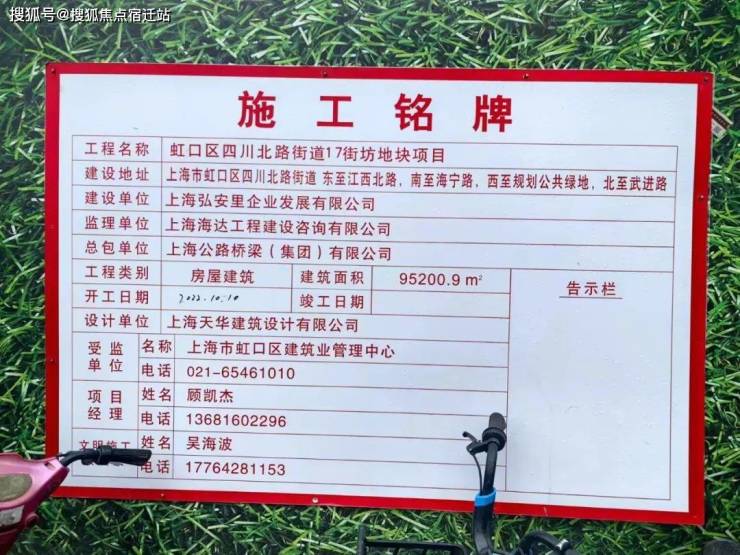 搜狐号@搜狐焦点宿迁站
施工铭牌
工程名称 虹口区四川北路街道17街坊地块项目
建设地址 上海市虹口区四川北路街道 东至江西北路，南至海宁路，西至规划公共绿地，北至武进路
建设单位 上海弘安里企业发展有限公司
监理单位 上海海达工程建设咨询有限公司
总包单位 上海公路桥梁（集团）有限公司
工程类别 房屋建筑 建筑面积 95200.9 m² 告示栏
开工日期 2022.10.10 竣工日期
设计单位 上海天华建筑设计有限公司
受监单位 名称 上海市虹口区建筑业管理中心
电话 021-65461010
项目经理 姓名 顾凯杰
电话 13681602296
文明施工 姓名 吴海波
电话 17764281153